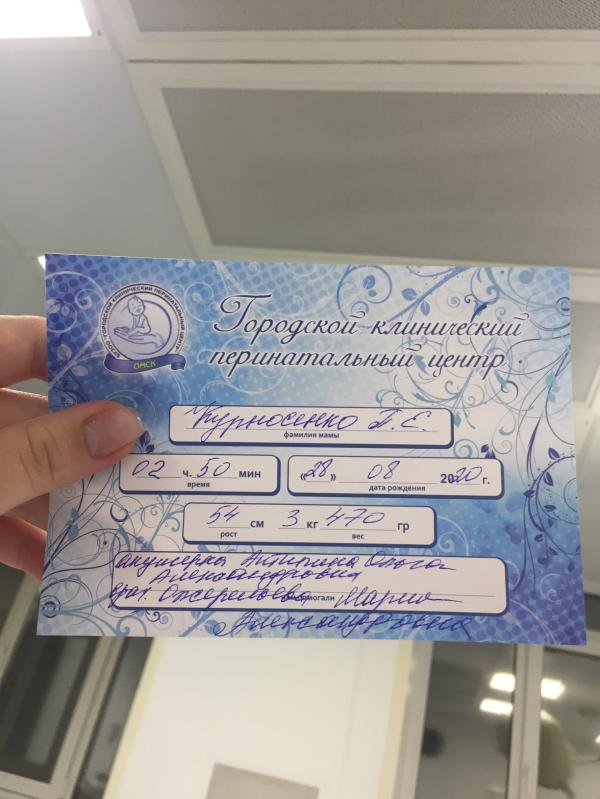 БУЗОО "ГОРОДСКОЙ КЛИНИЧЕСКИЙ ПЕРИНАТАЛЬНЫЙ ЦЕНТР"
ОМСК
Городской клинический
перинатальный центр
Курносенко Т. Е.
фамилия мамы
02 ч. 50 мин
время
«28» 08 2020 г.
дата рождения
54 см 3 кг 470 гр
рост вес
акушерка Антипина Ольга
Александровна
врач. Ожерельева Мария
помогали
Александровна